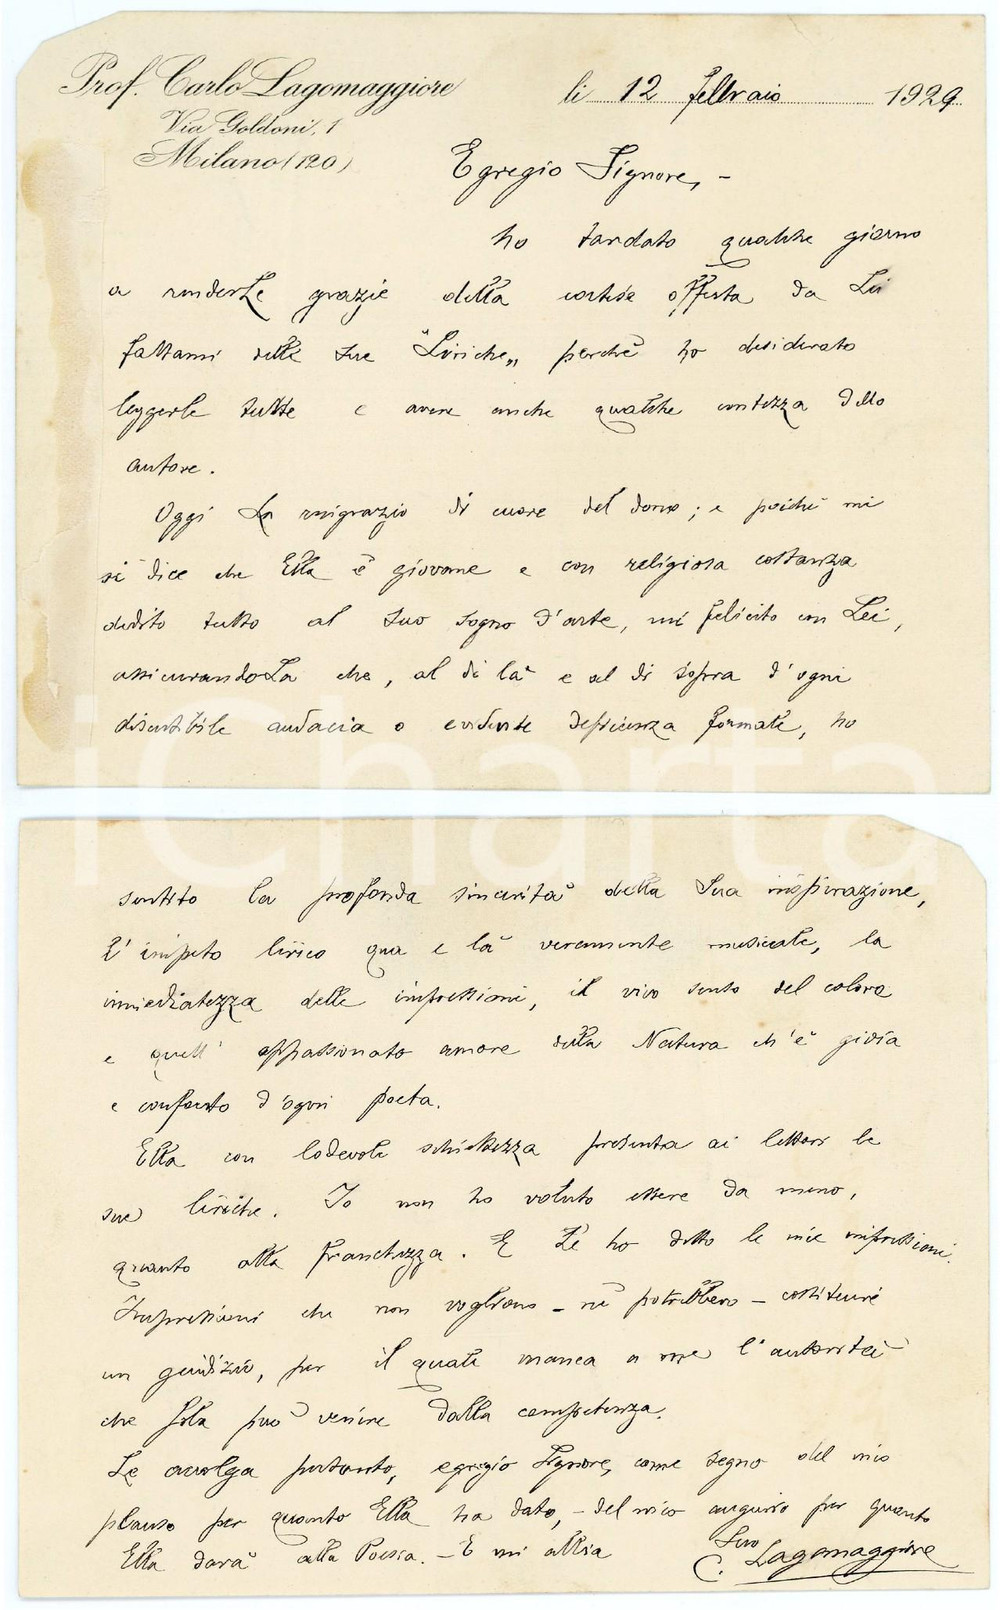 Prof. Carlo Lagomaggiore
Via Goldoni, 1
Milano (120)
li 12 febbraio 1929.
Egregio Signore, -
ho tardato qualche giorno
a renderLe grazie della cortese offerta da Lei
fattami delle sue "Liriche„ perchè ho desiderato
leggerle tutte e avere anche qualche contezza dello
autore.
Oggi La ringrazio di cuore del dono; e poichè mi
si dice che Ella è giovane e con religiosa costanza
dedito tutto al suo sogno d'arte, mi felicito con Lei,
assicurandoLa che, al di là e al di sopra d'ogni
discutibile audacia o evidente deficienza formale, ho
sentito la profonda sincerità della Sua inspirazione,
l'impeto lirico qua e là veramente musicale, la
immediatezza delle impressioni, il vivo senso del colore
e quell' appassionato amore della Natura ch'è gioia
e conforto d'ogni poeta.
Ella con lodevole schiettezza presenta ai lettori le
sue liriche. Io non ho voluto essere da meno,
quanto alla franchezza. E Le ho detto le mie impressioni.
Impressioni che non vogliono - nè potrebbero - costituire
un giudizio, per il quale manca a me l'autorità
che sola può venire dalla competenza.
Le accolga pertanto, egregio Signore, come segno del mio
plauso per quanto Ella ha dato, - del mio augurio per quanto
Ella darà alla Poesia. - E mi abbia
Suo
C. Lagomaggiore
iCharta